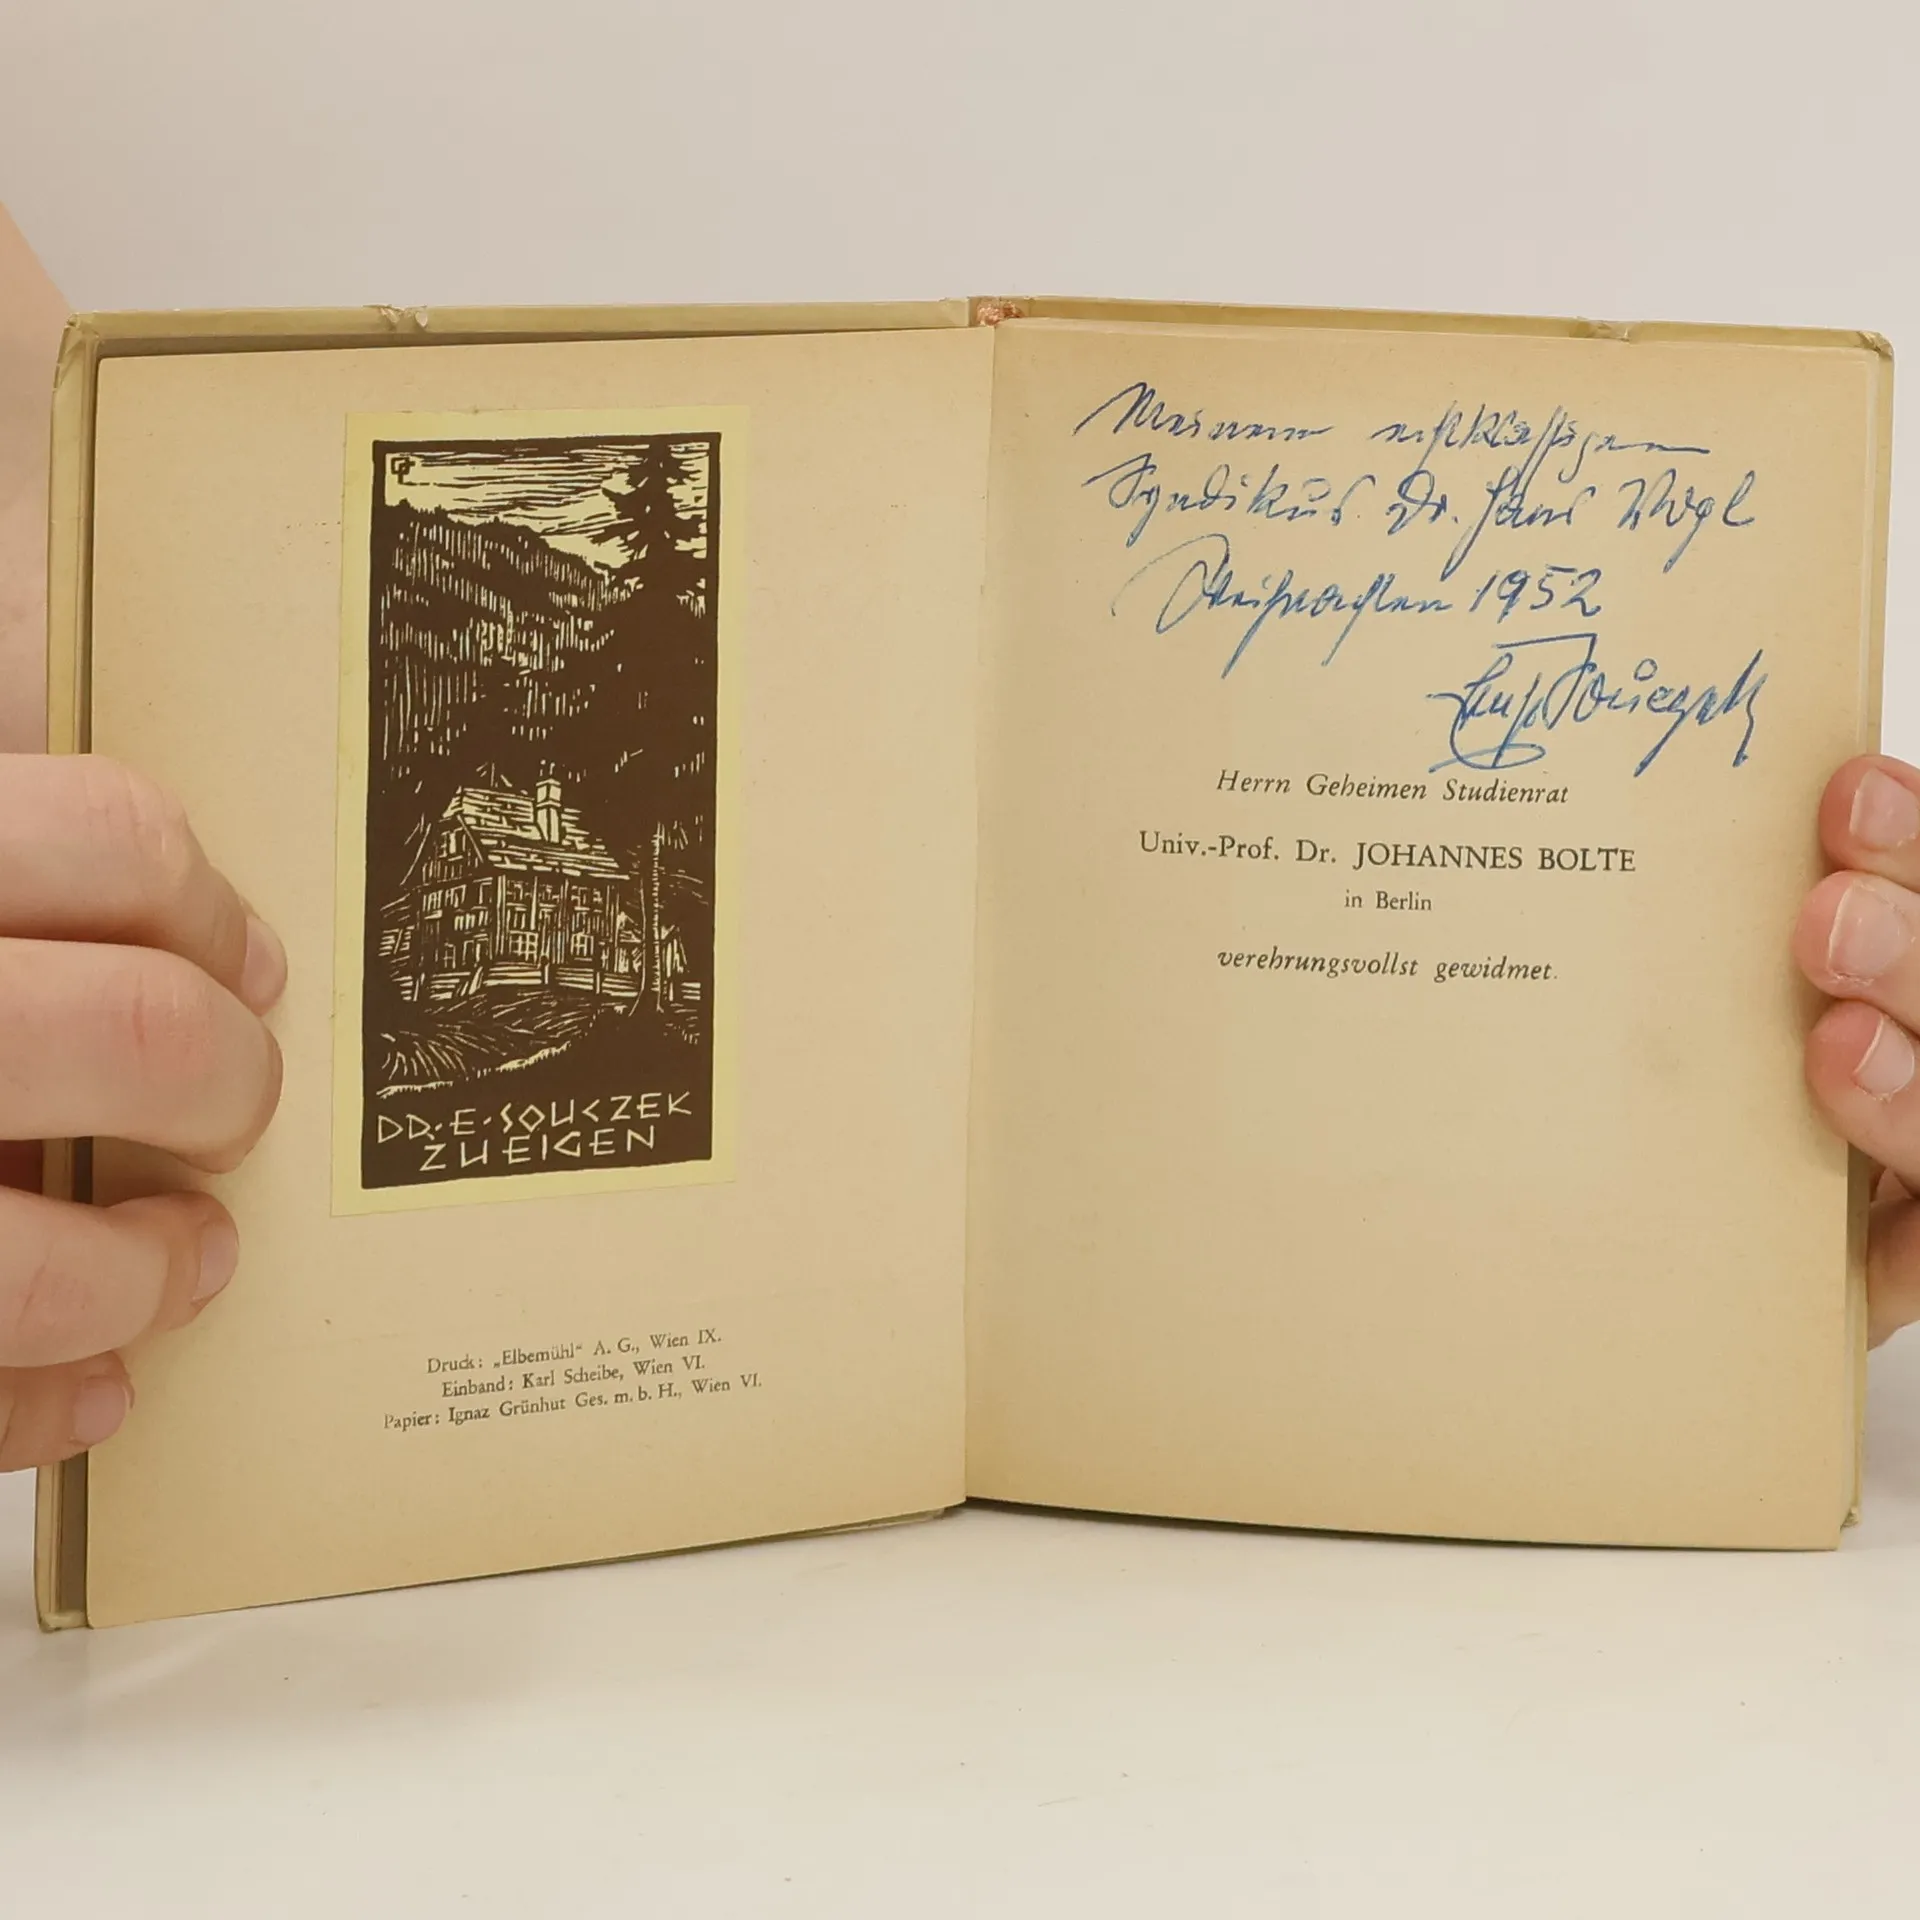 DDR. E. SOUCZEK
ZU EIGEN
Druck: „Elbemühl“ A. G., Wien IX.
Einband: Karl Scheibe, Wien VI.
Papier: Ignaz Grünhut Ges. m. b. H., Wien VI.
Meinem erstklassigen
Syndikus Dr. Hans Vogl
Weihnachten 1952
Souczek
Herrn Geheimen Studienrat
Univ.-Prof. Dr. JOHANNES BOLTE
in Berlin
verehrungsvollst gewidmet.